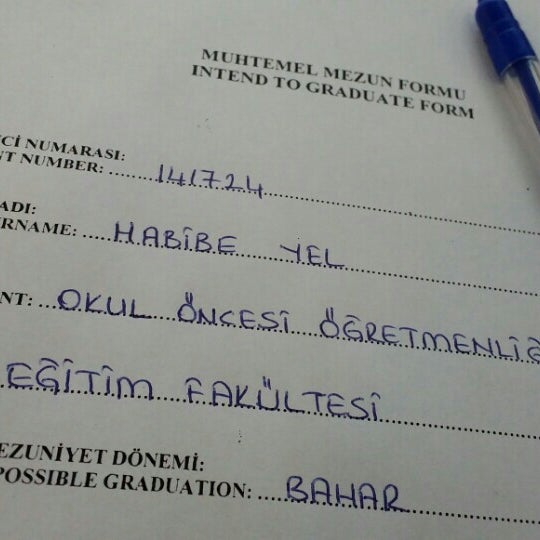 MUHTEMEL MEZUN FORMU
INTEND TO GRADUATE FORM
Cİ NUMARASI:
NT NUMBER: 141724
ADI:
RNAME: HABİBE YEL
NT: OKUL ÖNCESİ ÖĞRETMENLİĞ
EĞİTİM FAKÜLTESİ
EZUNİYET DÖNEMİ:
POSSIBLE GRADUATION: BAHAR